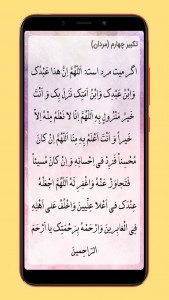 تکبیر چهارم (مردان)
اگر میت مرد است: اَللّهُمَّ اِنَّ هذا عَبْدُکَ
وَابْنُ عَبْدِکَ وَابْنُ اَمَتِکَ نَزَلَ بِکَ وَ اَنْتَ
خَیْرُ مَنْزُولٍ بِهِ اَللّهُمَّ اِنّا لا نَعْلَمُ مِنْهُ اِلاّ
خَیْراً وَ اَنْتَ اَعْلَمُ بِهِ مِنّا اَللّهُمَّ اِنْ کانَ
مُحْسِناً فَزِدْ فی اِحْسانِهِ وَ اِنْ کانَ مُسیئاً
فَتَجاوَزْ عَنْهُ وَاغْفِرْ لَهُ اَللّهُمَّ اجْعَلْهُ
عِنْدَکَ فی اَعْلا عِلِّیّینَ وَاخْلُفْ عَلی اَهْلِهِ
فِی الْغابِرینَ وَارْحَمْهُ بِرَحْمَتِکَ یا اَرْحَمَ
الرّاحِمینَ